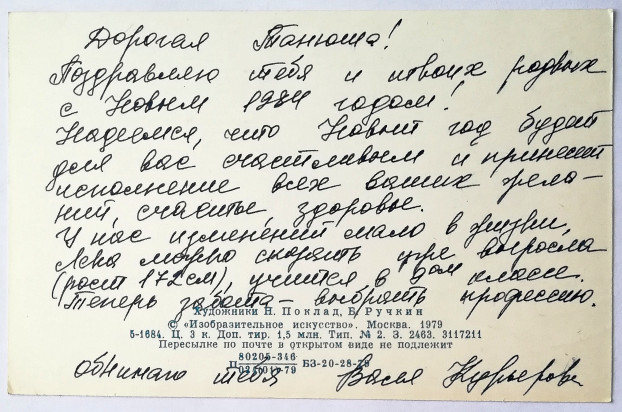 Дорогая Танюша!
Поздравляю тебя и твоих родных
с Новым 1984 годом!
Надеемся, что Новый год будет
для вас счастливым и принесет
исполнение всех ваших жела-
ний, счастье, здоровье.
У нас изменений мало в жизни,
Яна можно сказать уже выросла
(рост 172 см), учится в 9ом классе.
Теперь забота – выбрать профессию.
Художники Н. Поклад, В. Ручкин
© «Изобразительное искусство». Москва. 1979
5-1684. Ц. 3 к. Доп. тир. 1,5 млн. Тип. № 2. З. 2463. 3117211
Пересылке по почте в открытом виде не подлежит
80205-346
БЗ-20-28-79
обнимаю тебя Васья